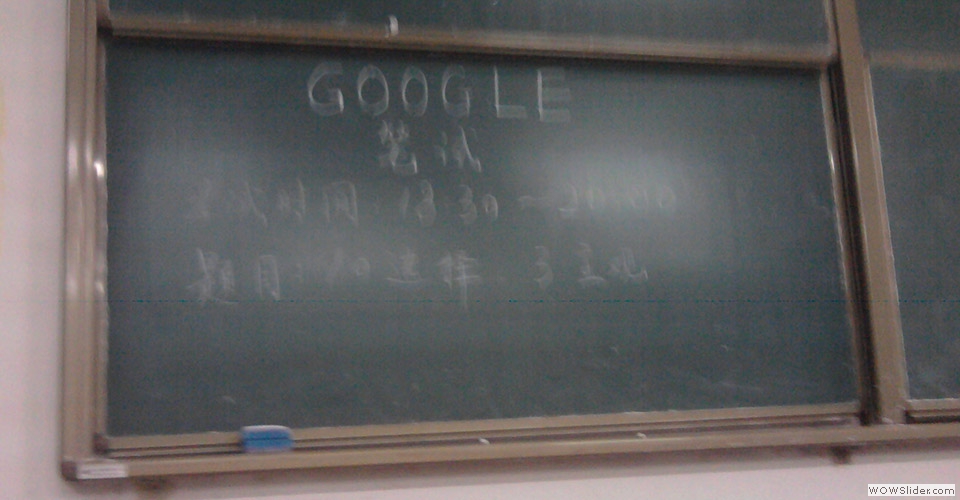 GOOGLE
笔试
考试时间:18:30~20:00
题目:10选择 3主观
WOWSlider.com